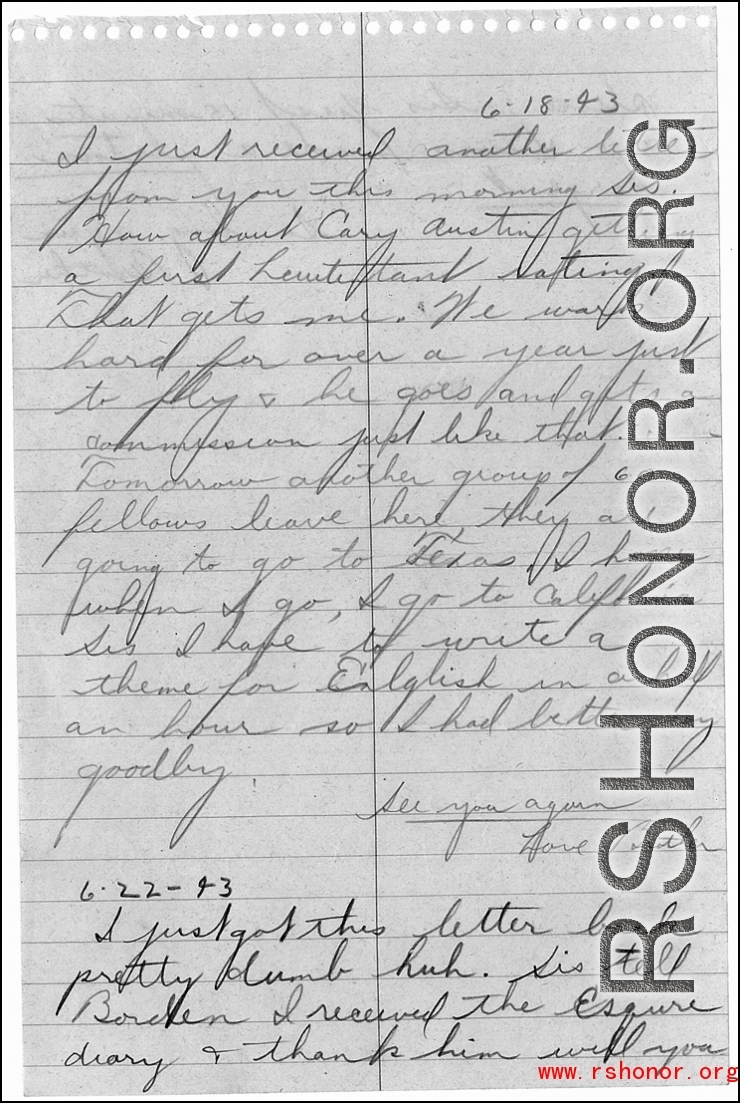 6-18-43
I just received another letter
from you this morning Sis.
How about Cary Austin getting
a first leuitetant rating!
That gets me. We work
hard for over a year just
to fly & he goes and gets a
commission just like that.
Tomorrow another group of 6
fellows leave here, they are
going to go to Texas. I hope
when I go, I go to Califor
Sis I have to write a
theme for Enlglish in a half
an hour so I had better say
goodby.
See you again
Love
6-22-43
I just got this letter back
pretty dumb huh. Sis tell
Borden I received the Esquire
diary & thank him will you
RSHONOR.ORG
www.rshonor.org